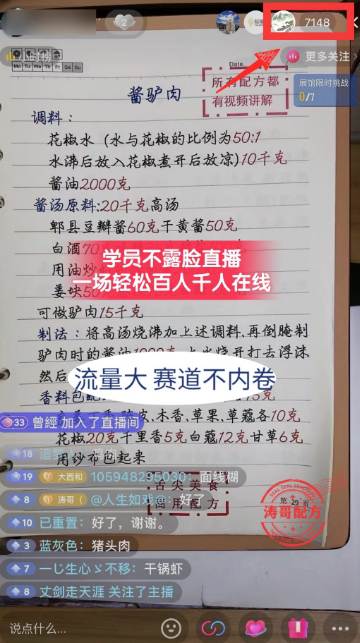 7148
更多关注
展馆限时挑战
0/7
Date
所有配方都
有视频讲解
酱驴肉
调料：
花椒水（水与花椒的比例为50:1
水沸后放入花椒煮开后放凉)10千克
酱油2000克
酱汤原料:20千克高汤
郫县豆瓣酱60克干黄酱50克
白酒
学员不露脸直播
一场轻松百人千人在线
用油炒
姜块
可做驴肉15千克
制法：将高汤烧沸加上述调料,再倒腌制
驴肉时的酱油1000
上火烧开打去浮沫
然后
流量大 赛道不内卷
香料包
33 曾經 加入了直播间
木香,草果,草蔻各10克
花椒20克千里香5克白蔻12克甘草6克
19 大西和 105948295030: 面线糊
用纱布包起来
8 涛哥（@人生如戏@: 好了
舌尖美食
商用配方
第29页
涛哥配方
10 已重置: 好了，谢谢。
3 蓝灰色: 猪头肉
一し生心ゞ不移: 干锅虾
8 丈剑走天涯 关注了主播
说点什么...